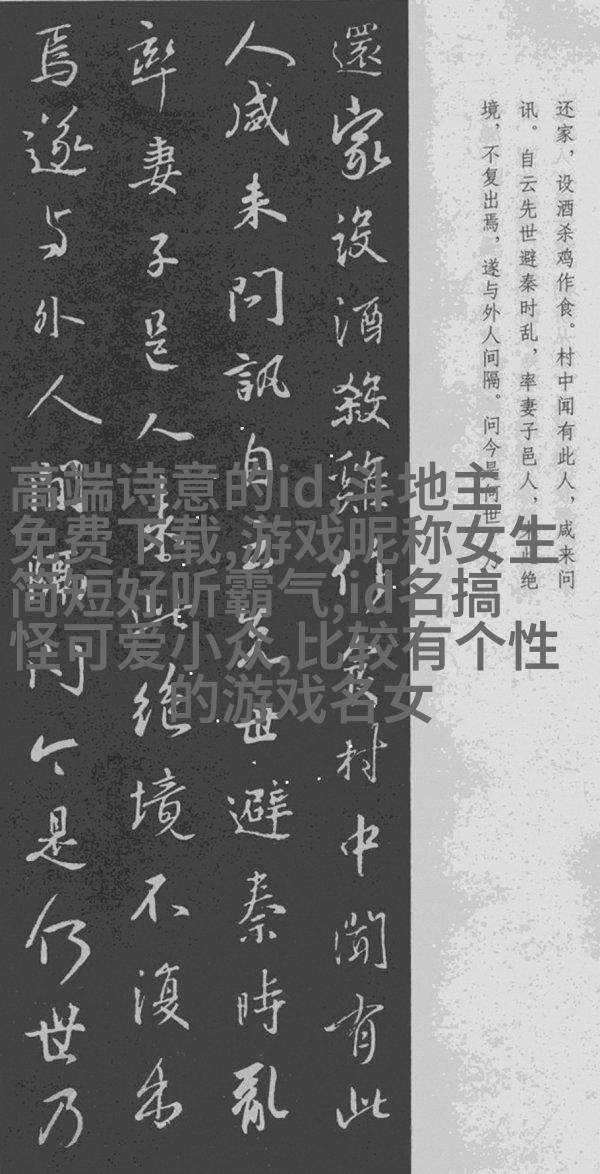 還家設酒殺雞作食村中聞有此
人咸来問訊自云先世避秦時亂
率妻子邑人来此绝境不復出
焉遂与外人間隔問今是何世乃
还家，设酒杀鸡作食。村中闻有此人，咸来问
讯。自云先世避秦时乱，率妻子邑人，来此绝
境，不复出焉，遂与外人间隔。问今是何世，乃
高端诗意的id,斗地主
免费下载,游戏昵称女生
简短好听霸气,id名搞
怪可爱小众,比较有个性
的游戏名女